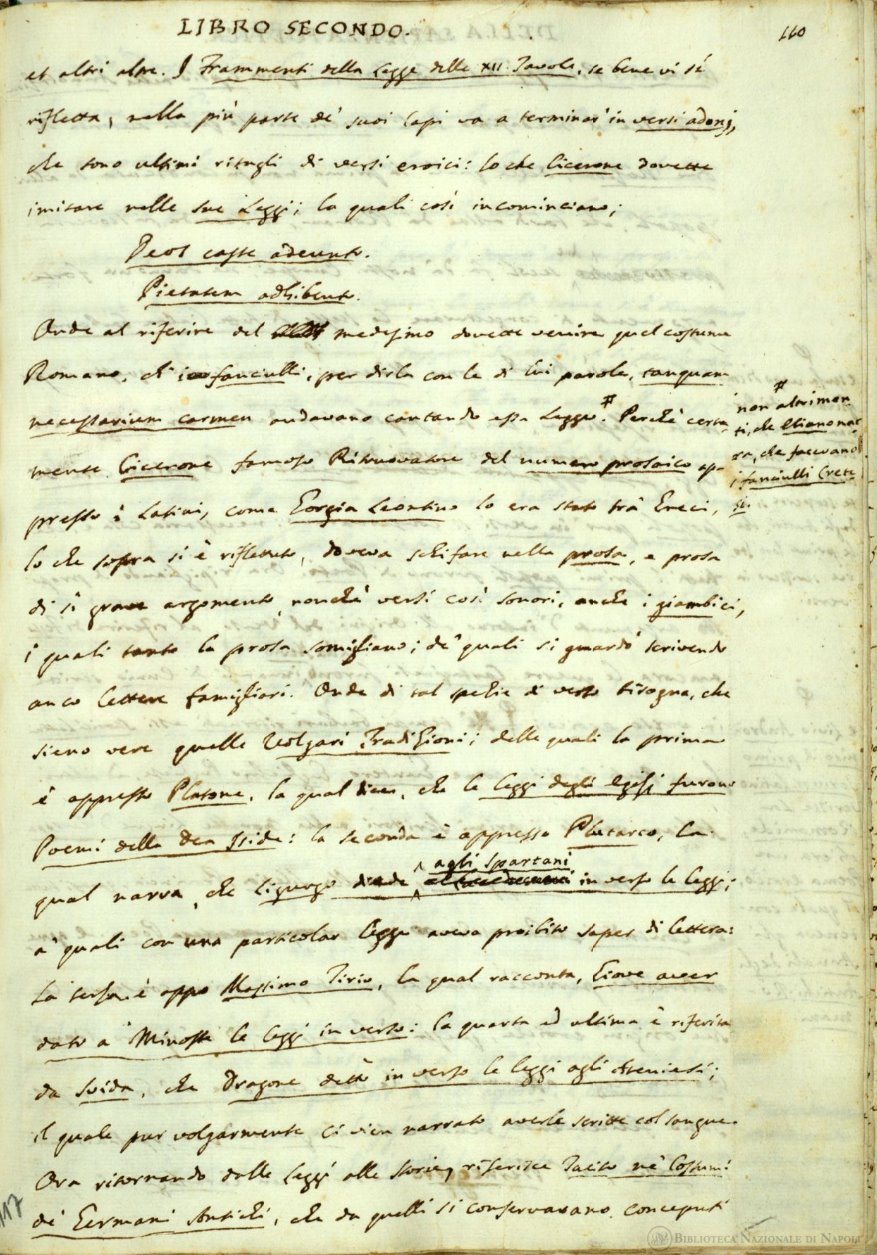 LIBRO SECONDO.
110
et altri altre. I Frammenti della Legge delle XII. Tavole, se bene vi si
rifletta, nella più parte de' suoi Capi va a terminar' in versi adonj,
che sono ultimi ritagli di versi eroici: lo che Cicerone dovette
imitare nelle sue Leggi; la quali così incominciano;
Deos caste adeunto.
Pietatem adhibento.
Onde al riferire del medesimo dovette venire quel costume
Romano, ch' i fanciulli, per dirla con le di lui parole, tanquam
necessarium carmen andavano cantando essa Legge #. Perchè certa
mente Cicerone famoso Ritruovatore del numero prosaico ap-
presso i Latini, come Gorgia Leontino lo era stato trà Greci,
lo che sopra si è riflettuto, doveva schifare nella prosa, e prosa
di sì grave argomento, nonchè versi così sonori, anche i giambici,
i quali tanto la prosa somigliano; de' quali si guardò scrivendo
anco lettere famigliari. Onde di tal spezie di verso bisogna, che
sieno vere quelle Volgari Tradizioni; delle quali la prima
è appresso Platone, la qual dice, che le leggi degli Egizj furono
Poemi della Dea Iside: la seconda è appresso Plutarco, la
agli Spartani
qual narra, che Ligurgo diede in verso le leggi;
a' quali con una particolar legge aveva proibito saper di lettera:
la terza è appo Massimo Tirio, la qual racconta, Giove aver
dato a Minosse le leggi in verso: la quarta ed ultima è riferita
da Suida, che Dragone dettò in verso le leggi agli Ateniesi;
il quale pur volgarmente ci vien narrato averle scritte col sangue.
Ora ritornando dalle leggi alle storie, riferisce Tacito ne' Costumi
de' Germani Antichi, che da quelli si conservavano conceputi
#
non altrimen
ti, che Eliano nar
ra, che facevano
i fanciulli Crete
si.
117
BIBLIOTECA NAZIONALE DI NAPOLI